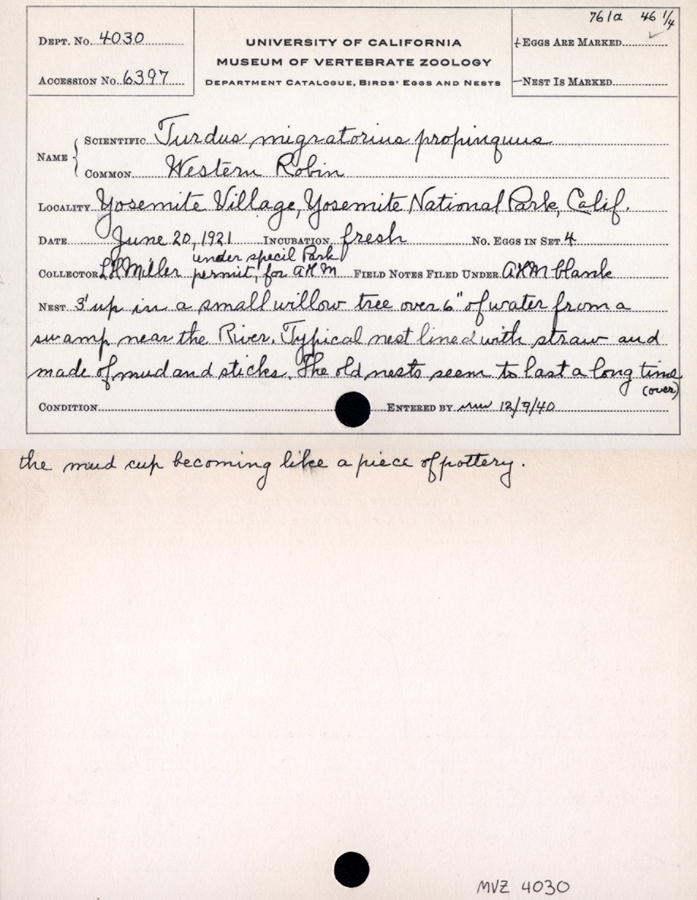 761a 46 1/4
DEPT. No. 4030
ACCESSION No. 6397
UNIVERSITY OF CALIFORNIA
MUSEUM OF VERTEBRATE ZOOLOGY
DEPARTMENT CATALOGUE, BIRDS' EGGS AND NESTS
EGGS ARE MARKED ✓
NEST IS MARKED
NAME
SCIENTIFIC Turdus migratorius propinquus
COMMON Western Robin
LOCALITY Yosemite Village, Yosemite National Park, Calif.
DATE June 20, 1921 INCUBATION fresh No. EGGS IN SET 4
under specil Park
COLLECTOR Miller permit, for AHM FIELD NOTES FILED UNDER AHM blank
NEST 3' up in a small willow tree over 6" of water from a
swamp near the River. Typical nest lined with straw and
made of mud and sticks. The old nests seem to last a long time
(over)
CONDITION ENTERED BY 12/9/40
the mud cup becoming like a piece of pottery.
MVZ 4030